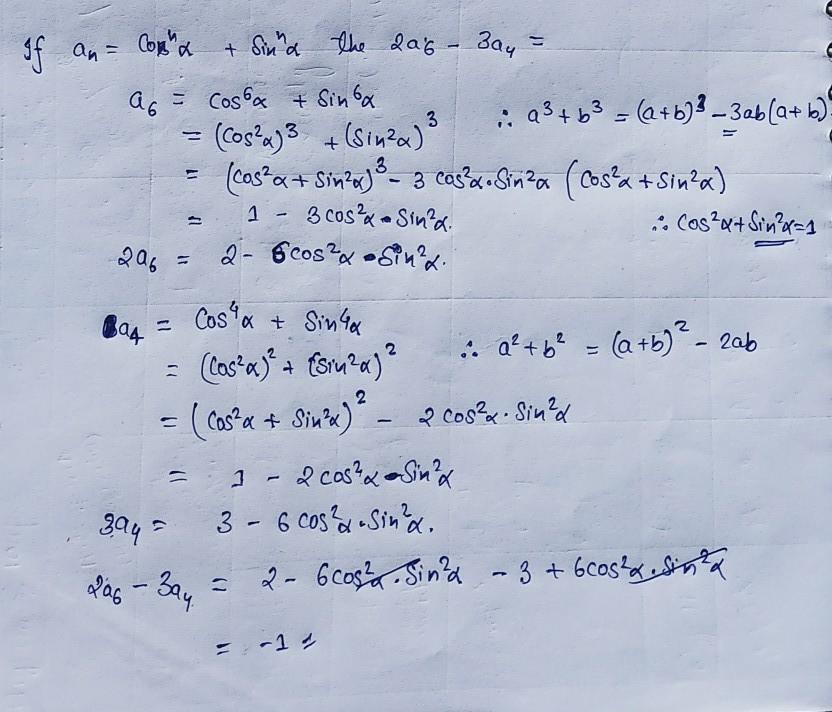 If aₙ = Cosⁿα + Sinⁿα the 2a6 - 3a₄ =
a₆ = Cos⁶α + Sin⁶α
= (Cos²α)³ + (Sin²α)³ ∴ a³ + b³ = (a+b)³ - 3ab(a+b)
= (Cos²α + Sin²α)³ - 3 Cos²α·Sin²α (Cos²α + Sin²α)
= 1 - 3cos²α·Sin²α. ∴ Cos²α + Sin²α = 1
2a₆ = 2 - 6cos²α·Sin²α.
a₄ = Cos⁴α + Sin4α
= (Cos²α)² + (Sin²α)² ∴ a² + b² = (a+b)² - 2ab
= (Cos²α + Sin²α)² - 2 cos²α·Sin²α
= 1 - 2 cos²α·Sin²α
3a₄ = 3 - 6 cos²α·Sin²α.
2a₆ - 3a₄ = 2 - 6cos²α·Sin²α - 3 + 6cos²α·Sin²α
= -1